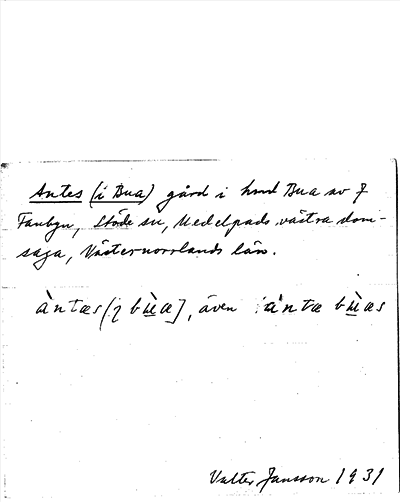 Antes (i Bua) gård i hmd Bua av f
Fanbyn, Stöde sn, Medelpads västra dom-
saga, Västernorrlands län.
àntæs (ɩ bùæ], även àntæ bùæs
Valter Jansson 1931